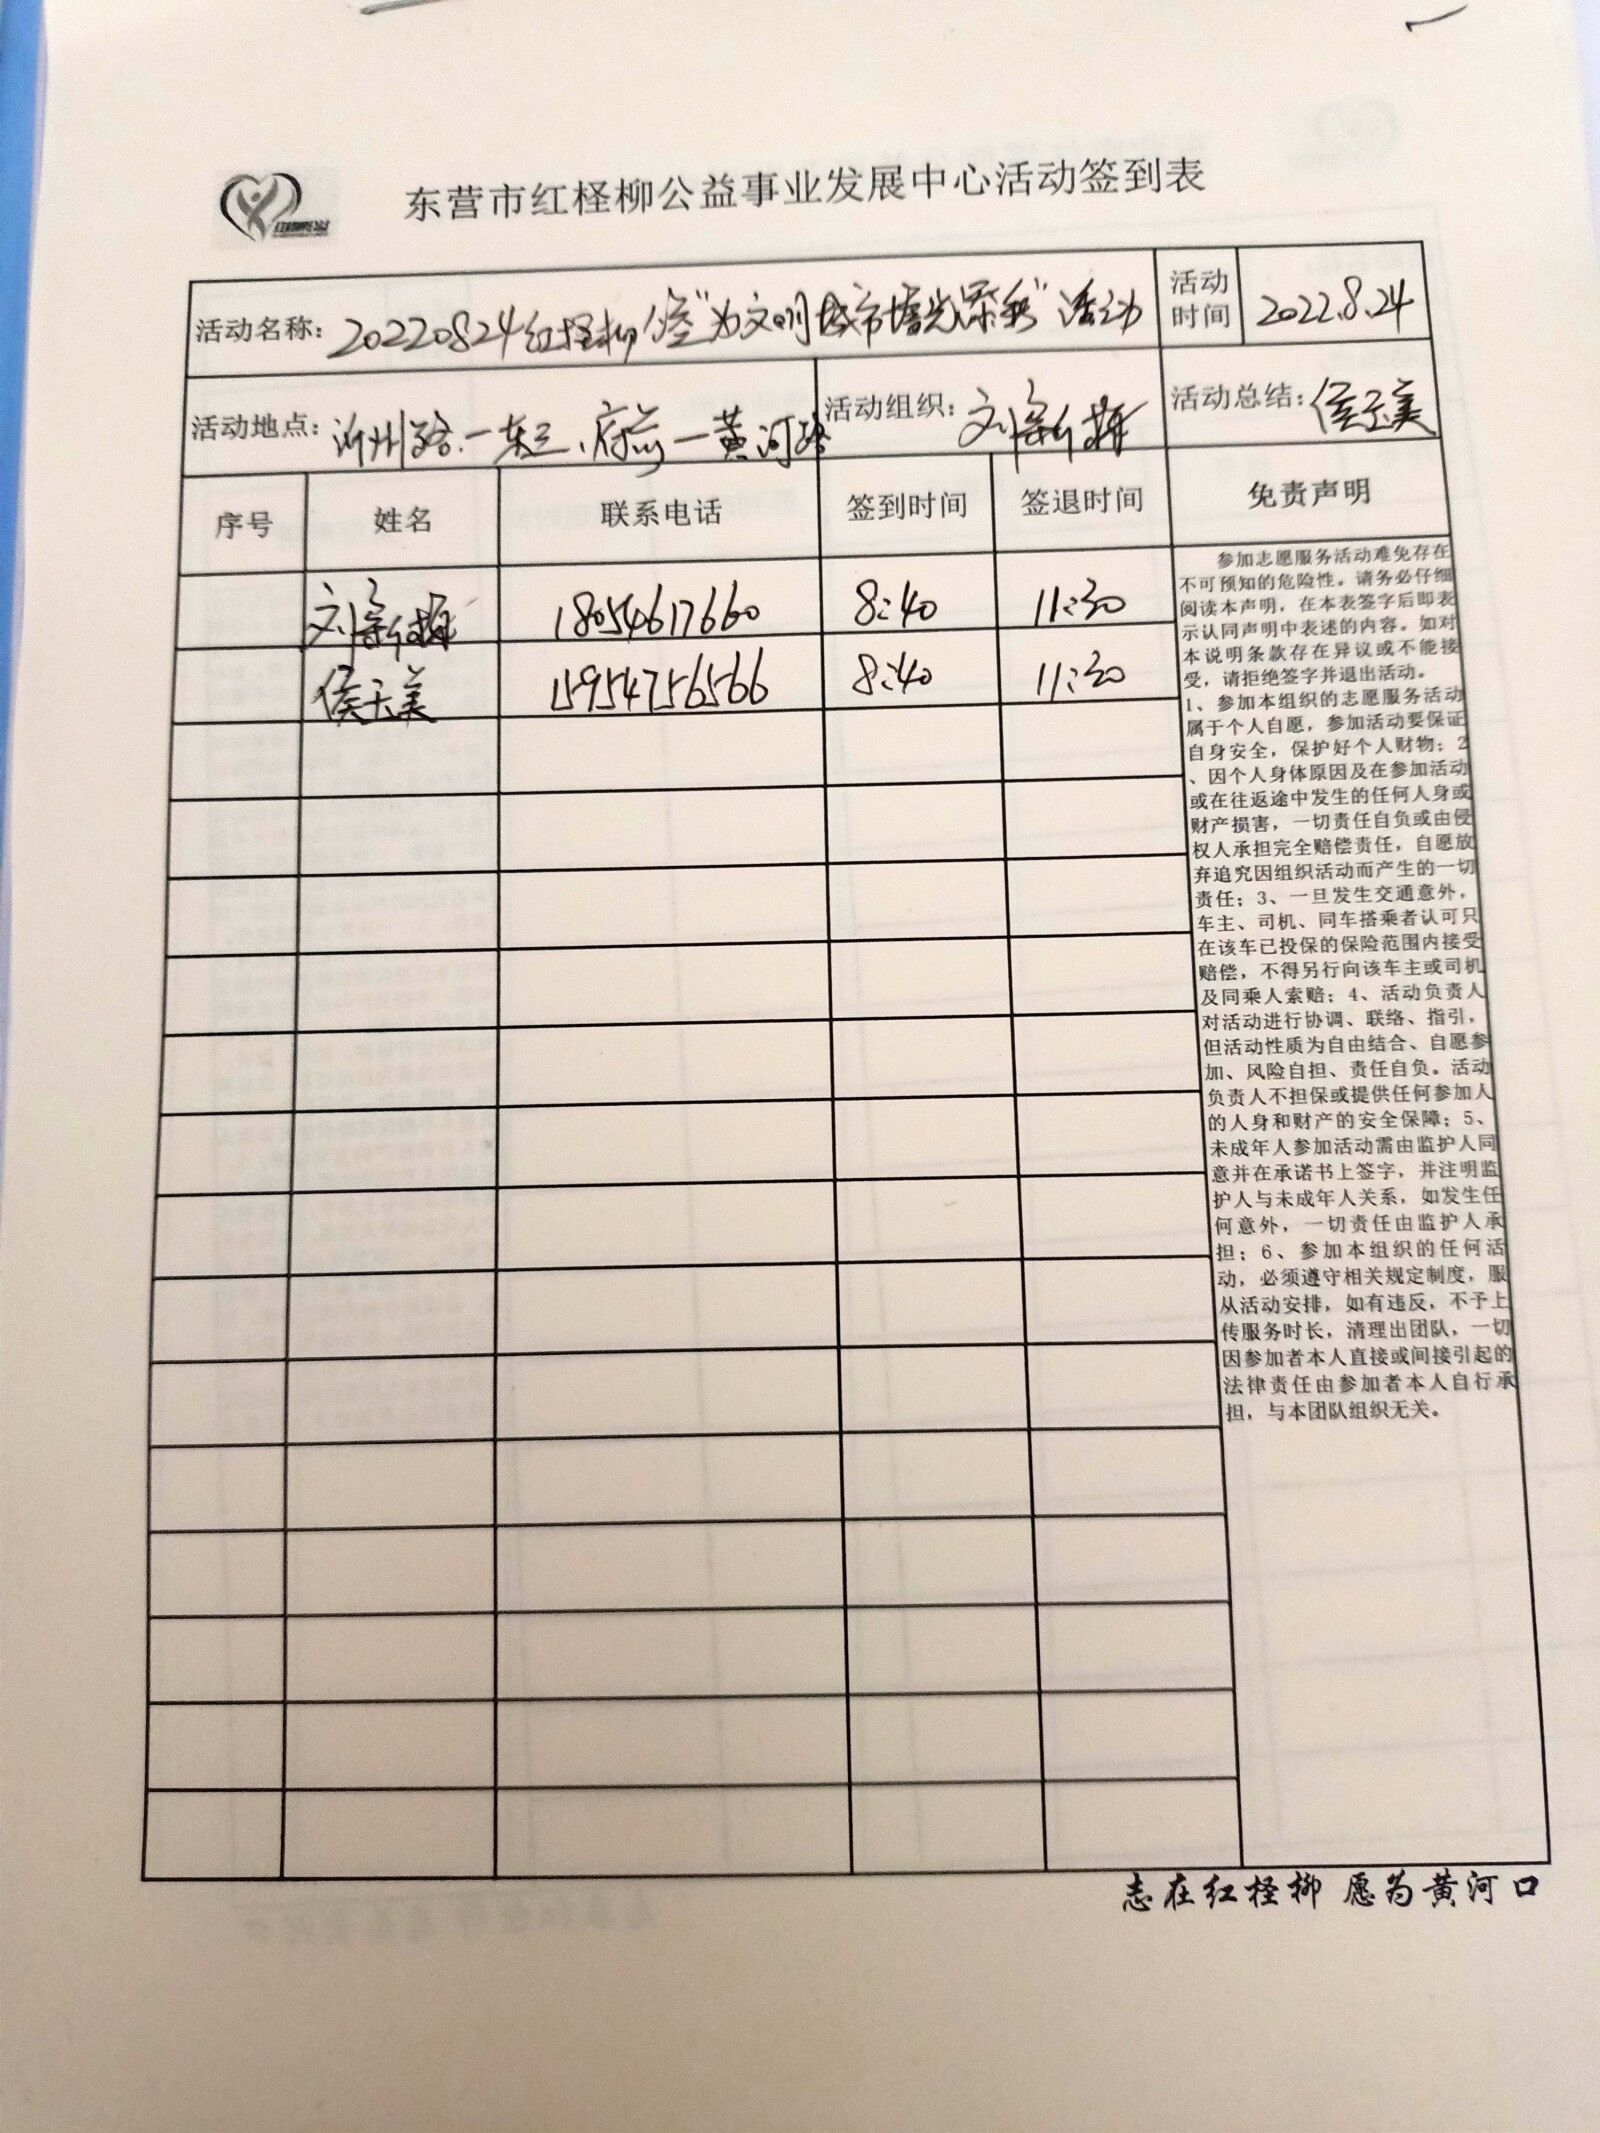 东营市红柽柳公益事业发展中心活动签到表
活动名称：20220824红柽柳公益"为文明城市增光添彩"活动
活动时间 2022.8.24
活动地点：沂州路.一东三、府前一黄河路
活动组织：刘新梅
活动总结：侯玉美
序号 姓名 联系电话 签到时间 签退时间 免责声明
刘新梅 18054617660 8:40 11:30
侯玉美 15954756566 8:40 11:30
参加志愿服务活动难免存在
不可预知的危险性。请务必仔细
阅读本声明，在本表签字后即表
示认同声明中表述的内容。如对
本说明条款存在异议或不能接
受，请拒绝签字并退出活动。
1、参加本组织的志愿服务活动
属于个人自愿，参加活动要保证
自身安全，保护好个人财物；2
、因个人身体原因及在参加活动
或在往返途中发生的任何人身或
财产损害，一切责任自负或由侵
权人承担完全赔偿责任，自愿放
弃追究因组织活动而产生的一切
责任；3、一旦发生交通意外，
车主、司机、同车搭乘者认可只
在该车已投保的保险范围内接受
赔偿，不得另行向该车主或司机
及同乘人索赔；4、活动负责人
对活动进行协调、联络、指引，
但活动性质为自由结合、自愿参
加、风险自担、责任自负。活动
负责人不担保或提供任何参加人
的人身和财产的安全保障；5、
未成年人参加活动需由监护人同
意并在承诺书上签字，并注明监
护人与未成年人关系，如发生任
何意外，一切责任由监护人承
担；6、参加本组织的任何活
动，必须遵守相关规定制度，服
从活动安排，如有违反，不予上
传服务时长，清理出团队，一切
因参加者本人直接或间接引起的
法律责任由参加者本人自行承
担，与本团队组织无关。
志在红柽柳 愿为黄河口